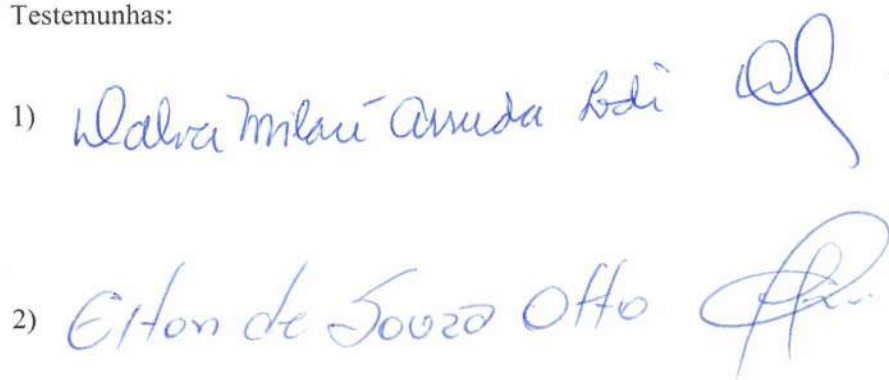 Testemunhas:
1) Dalva Milaré Arruda Lodi
2) Elton de Souza Otto